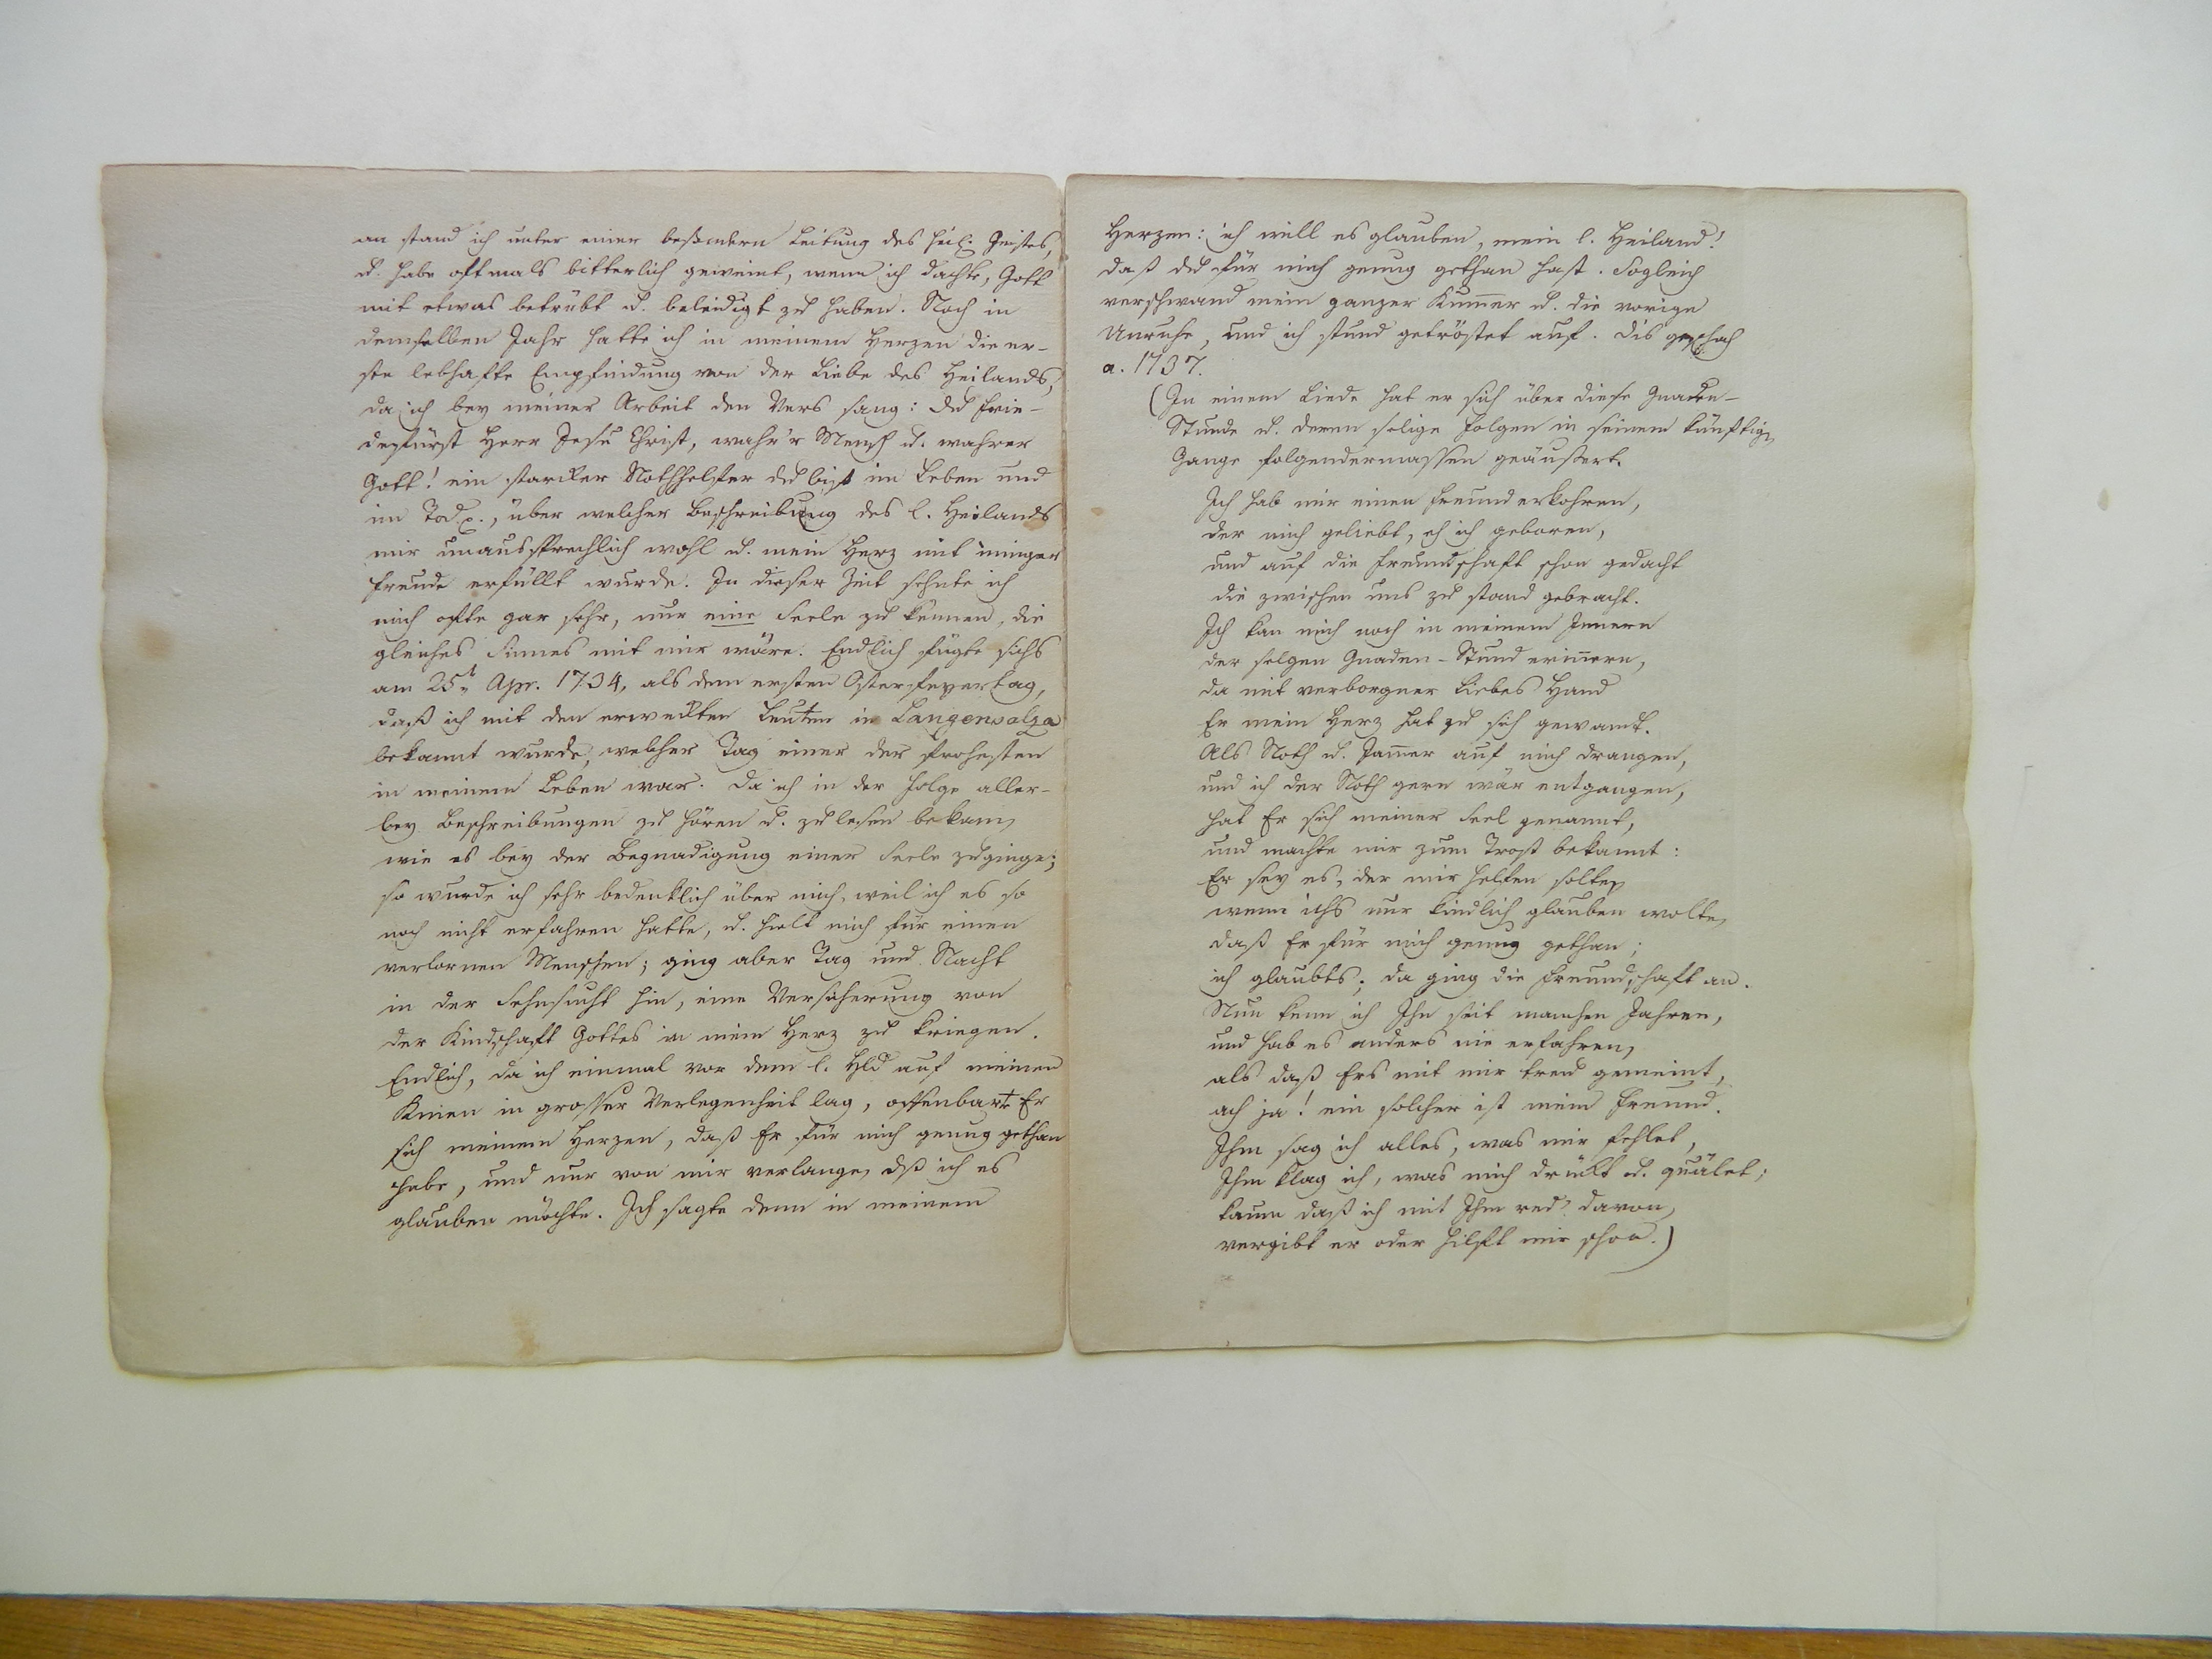 an stand ich unter einer besondern Leitung des heil. Geistes,
u. habe oftmals bitterlich geweint, wenn ich dachte, Gott
mit etwas betrübt u. beleidigt zu haben. Noch in
demselben Jahr hatte ich in meinem Herzen die er-
ste lebhafte Empfindung von der Liebe des Heilands,
da ich bey meiner Arbeit den Vers sang: Du Frie-
defürst Herr Jesu Christ, wahr'r Mensch u. wahrer
Gott! ein starcker Nothhelfer du bist im Leben und
im Tod p., über welcher Beschreibung des l. Heilands
mir unaussprechlich wohl u. mein Herz mit inniger
Freude erfüllt wurde. In dieser Zeit sehnte ich
mich ofte gar sehr, nur eine Seele zu kennen, die
gleiches Sinnes mit mir wäre. Endlich fügte sichs
am 25t Apr. 1734, als dem ersten Osterfeyertag,
daß ich mit den erwekten Leuten in Langensalza
bekannt wurde, welcher Tag einer der frohesten
in meinem Leben war. Da ich in der Folge aller-
ley Beschreibungen zu hören u. zu lesen bekam,
wie es bey der Begnadigung einer Seele zuginge;
so wurde ich sehr bedenklich über mich, weil ich es so
noch nicht erfahren hatte, u. hielt mich für einen
verlornen Menschen; ging aber Tag und Nacht
in der Sehnsucht hin, eine Versicherung von
der Kindschaft Gottes in mein Herz zu kriegen.
Endlich, da ich einmal vor dem l. Hld auf meinen
Knien in grosser Verlegenheit lag, offenbarte Er
sich meinem Herzen, daß Er für mich genug gethan
habe, und nur von mir verlange, dß ich es
glauben möchte. Ich sagte denn in meinem
Herzen: ich will es glauben, mein l. Heiland!
daß du für mich genug gethan hast. Sogleich
verschwand mein ganzer Kum̄er u. die vorige
Unruhe, und ich stund getröstet auf. Dis geschah
a. 1737.
(In einem Liede hat er sich über diese Gnaden-
Stunde u. deren selige Folgen in seinem künftigen
Gange folgendermassen geäussert.
Ich hab mir einen Freund erkohren,
der mich geliebt, eh ich geboren,
und auf die Freundschaft schon gedacht
die zwischen uns zu stand gebracht.
Ich kan mich noch in meinem Innern
der selgen Gnaden-Stund erin̄ern,
da mit verborgner Liebes Hand
Er mein Herz hat zu sich gewandt.
Als Noth u. Jam̄er auf mich drangen,
und ich der Noth gern wär entgangen,
hat Er sich meiner Seel genannt,
und machte mir zum Trost bekannt:
Er sey es, der mir helfen solte,
wenn ichs nur kindlich glauben wolte,
daß Er für mich genug gethan;
ich glaubts; da ging die Freundschaft an.
Nun kenn ich Ihn seit manchen Jahren,
und hab es anders nie erfahren,
als daß Ers mit mir treu gemeint,
ach ja! ein solcher ist mein Freund.
Ihm sag ich alles, was mir fehlet,
Ihm klag ich, was mich drükt u. quälet;
kaum daß ich mit Ihm red' davon,
vergibt er oder hilft mir schon.)